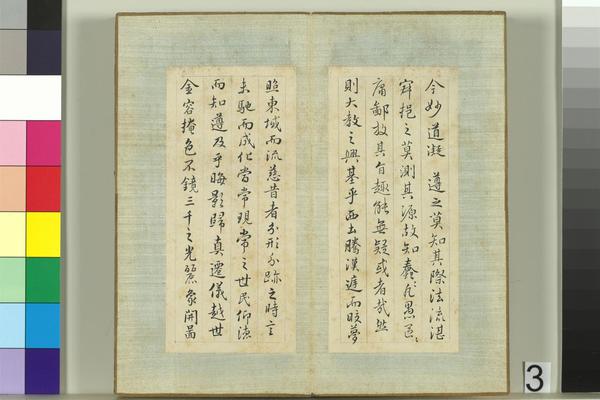 今妙道凝 遵之莫知其際法流湛
寂挹之莫測其源故知蠢〻凡愚區〻
庸鄙投其旨趣能無疑或者哉然
則大教之興基乎西土騰漢庭而皎夢
照東域而流慈昔者分形分跡之時言
未馳而成化當常現常之世民仰德
而知遵及乎晦影歸真遷儀越世
金容掩色不鏡三千之光麗象開圖
3